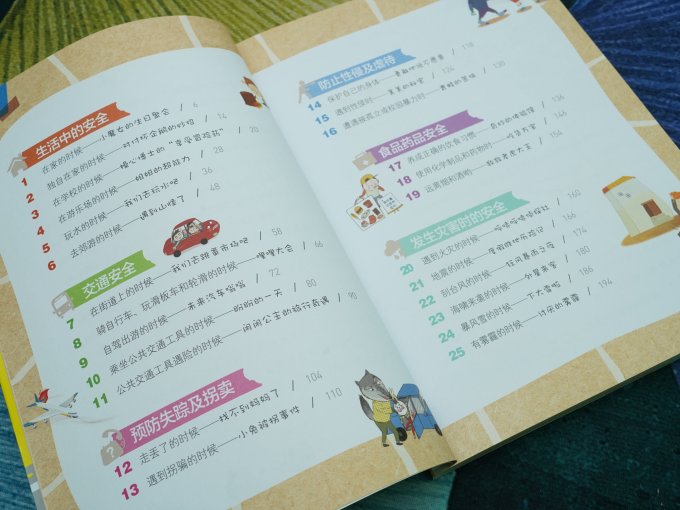 生活中的安全
1 在家的时候——小魔女的生日聚会 / 6
2 独自在家的时候——对付坏企鹅的妙招 / 14
3 在学校的时候——慢心博士的“享受冒险兵” / 20
4 在游乐场的时候——姐姐的超能力 / 28
5 玩水的时候——我们去玩水吧 / 36
6 去郊游的时候——遇到山怪了 / 48
交通安全
7 在街道上的时候——我们去跳蚤市场吧 / 58
8 骑自行车、玩滑板车和轮滑的时候——嘎嘎大会 / 66
9 自驾出游的时候——未来汽车嗡嗡 / 72
10 乘坐公共交通工具的时候——盼盼的一天 / 80
11 公共交通工具遇险的时候——闹闹公主的旅行奇遇 / 90
预防失踪及拐卖
12 走丢了的时候——找不到妈妈了 / 104
13 遇到拐骗的时候——小兔被拐事件 / 110
防止性侵及虐待
14 保护自己的身体——勇敢地说不愿意 / 118
15 遇到性侵时——美美的秘密 / 124
16 遭遇被孤立或校园暴力时——青蛙的烦恼 / 130
食品药品安全
17 养成正确的饮食习惯——奇妙的体验馆 / 136
18 使用化学制品和药物时——吹牛方家 / 146
19 远离烟和酒哟——救救老虎大王 / 154
发生灾害时的安全
20 遇到火灾的时候——呼哧呼哧侦探社 / 160
21 地震的时候——度假胜地历险记 / 166
22 刮台风的时候——狂风暴雨之夜 / 174
23 海啸来袭的时候——外星来客 / 180
24 暴风雪的时候——下大雪啦 / 186
25 有雾霾的时候——讨厌的雾霾 / 194